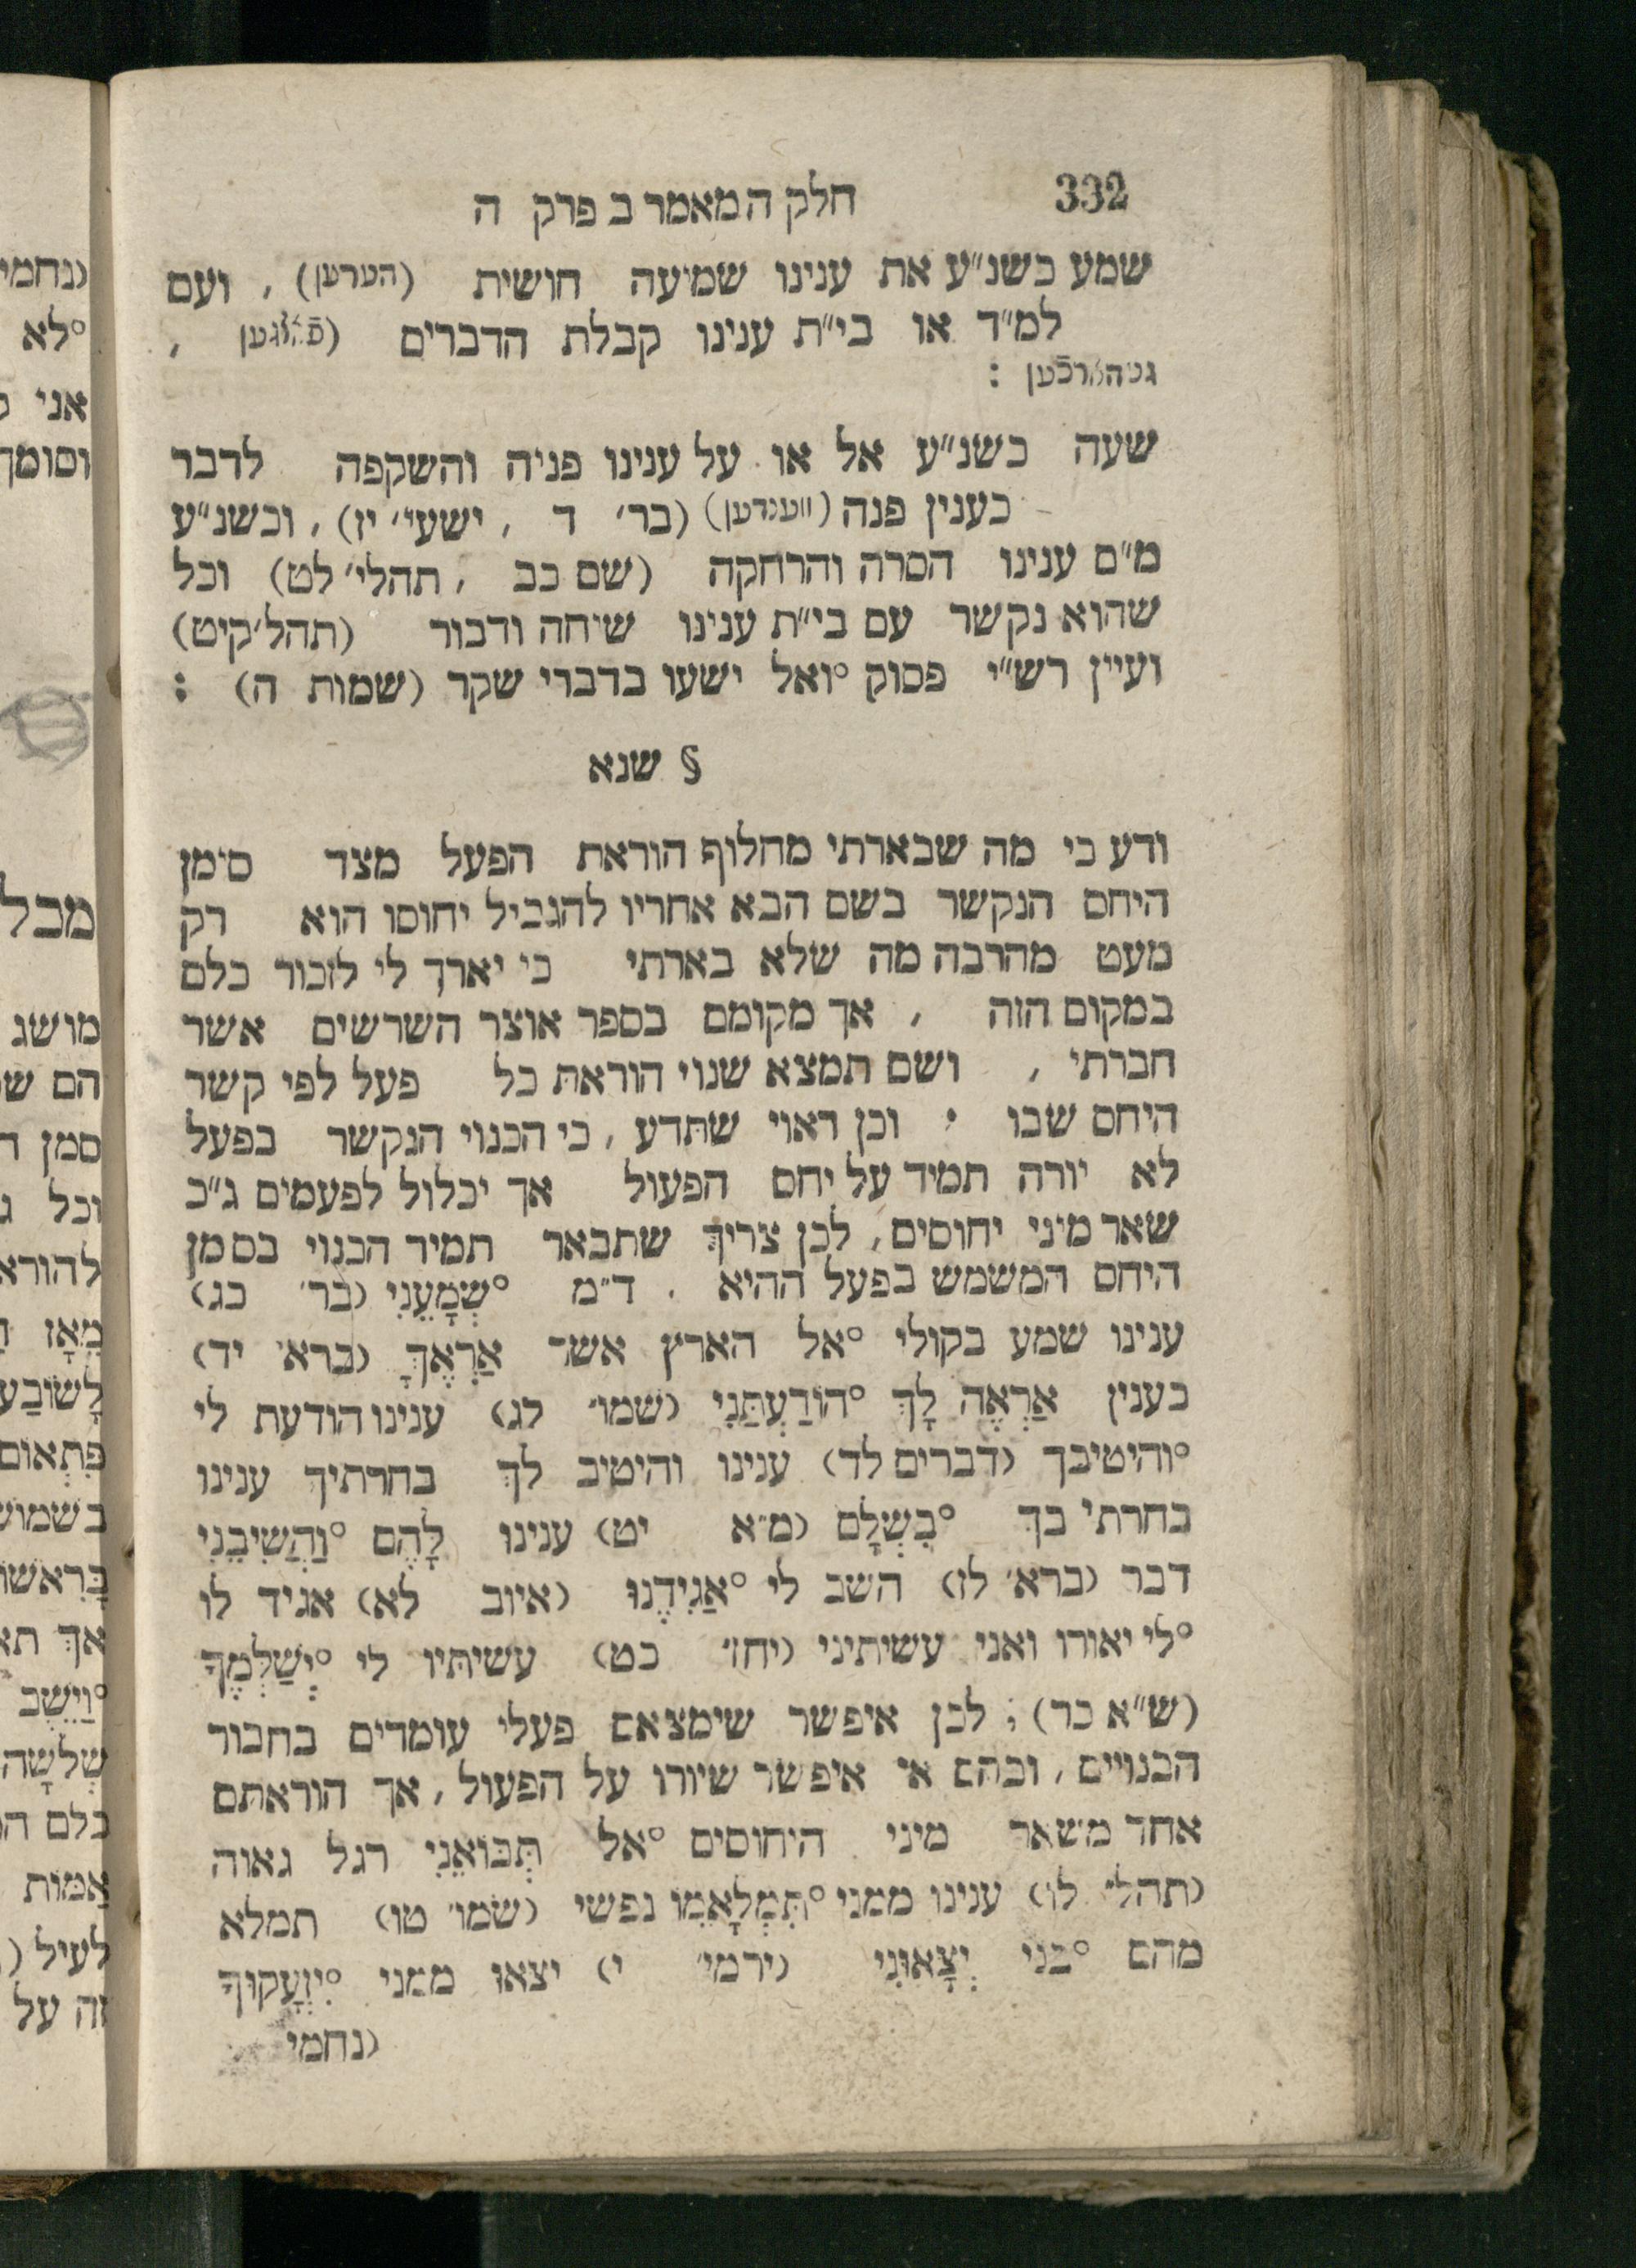 332 חלק ה מאמר ב פרק ה
שמע כשנ"ע את ענינו שמיעה חושית (הערען), ועם
למ"ד או בי"ת ענינו קבלת הדברים (פֿאלגען ,
געהארכֿען :
שעה כשנ"ע אל או על ענינו פניה והשקפה לדבר
כענין פנה (ווענדען) (בר' ד , ישעי' יז), וכשנ"ע
מ"ם ענינו הסרה והרחקה (שם כב , תהלי' לט) וכל
שהוא נקשר עם בי"ת ענינו שיחה ודבור (תהל'קיט)
ועיין רש"י פסוק °ואל ישעו בדברי שקר (שמות ה) :
§ שנא
ודע כי מה שבארתי מחלוף הוראת הפעל מצד סימן
היחס הנקשר בשם הבא אחריו להגביל יחוסו הוא רק
מעט מהרבה מה שלא בארתי כי יארך לי לזכור כלם
במקום הזה , אך מקומם בספר אוצר השרשים אשר
חברתי , ושם תמצא שנוי הוראת כל פעל לפי קשר
היחס שבו : וכן ראוי שתדע , כי הכנוי הנקשר בפעל
לא יורה תמיד על יחס הפעול אך יכלול לפעמים ג"כ
שאר מיני יחוסים, לכן צריך שתבאר תמיד הכנוי בסמן
היחס המשמש בפעל ההיא . ד"מ °שְׁמָעֵנִי (בר' כג)
ענינו שמע בקולי °אל הארץ אשר אַרְאֶךָּ (ברא' יד)
כענין אַרְאֶה לָךְ °הוֹדַעְתַּנִי (שמו' לג) ענינו הודעת לי
°והיטיבך (דברים לד) ענינו והיטיב לך בחרתיך ענינו
בחרתי בך °בִּשְׁלָם (מ"א יט) ענינו לָהֶם °וַהֲשִׁיבֵנִי
דבר (ברא' לז) השב לי °אַגִידֶנוּ (איוב לא) אגיד לו
°לי יאורו ואני עשיתיני (יחז' כט) עשיתיו לי °יְשַׁלְּמֶךָ
(ש"א כד) ; לכן איפשר שימצאם פעלי עומדים בחבור
הכנויים , ובהם אי איפשר שיורו על הפעול , אך הוראתם
אחד משאר מיני היחוסים °אל תְּבוֹאֵנִי רגל גאוה
(תהלי' לו) ענינו ממני °תִּמְלָאֵמוֹ נפשי (שמו' טו) תמלא
מהם °בני יְצָאוּנִי (ירמי' י) יצאו ממני °יִזְעָקוּךָ
(נחמי